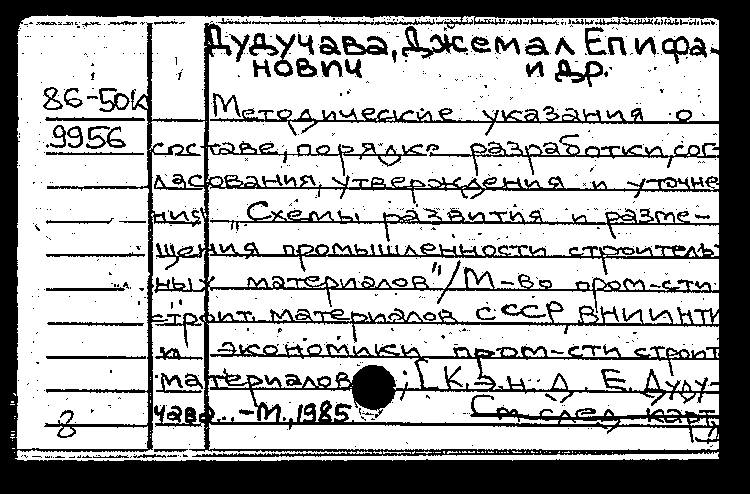 Дудучава, Джемал Епифа-
нович и др.
86-50k
9956
Методические указания о
составе, порядке разработки, сог-
ласования, утверждения и уточне
ния „Схемы развития и разме-
щения промышленности строитель
ных материалов"/М-во пром-сти
строит. материалов СССР, ВНИИНТИ
и экономики пром-сти строит
материалов ; [К.э.н. Д. Е. Дуду-
чава... -М., 1985. См след карт.
8